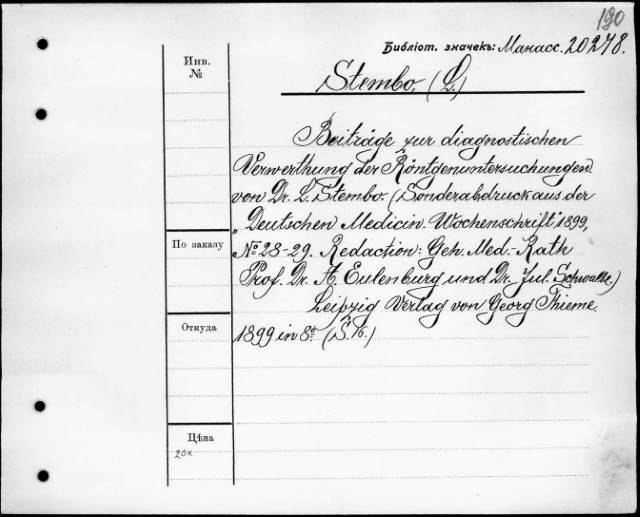 190
Библіот. значекъ: Манасс. 20278.
Инв.
№
Stembo. (L.)
Beiträge zur diagnostischen
Verwerthung der Röntgenuntersuchungen.
von Dr. L. Stembo. (Sonderabdruck aus der
„Deutschen Medicin. Wochenschrift" 1899,
По заказу
№ 28-29. Redaction: Geh. Med.-Rath
Prof. Dr. A. Eulenburg und Dr. Jul. Schwalbe.)
Leipzig Verlag von Georg Thieme.
Откуда
1899 in 8º (S. 16.)
Цѣна
20к